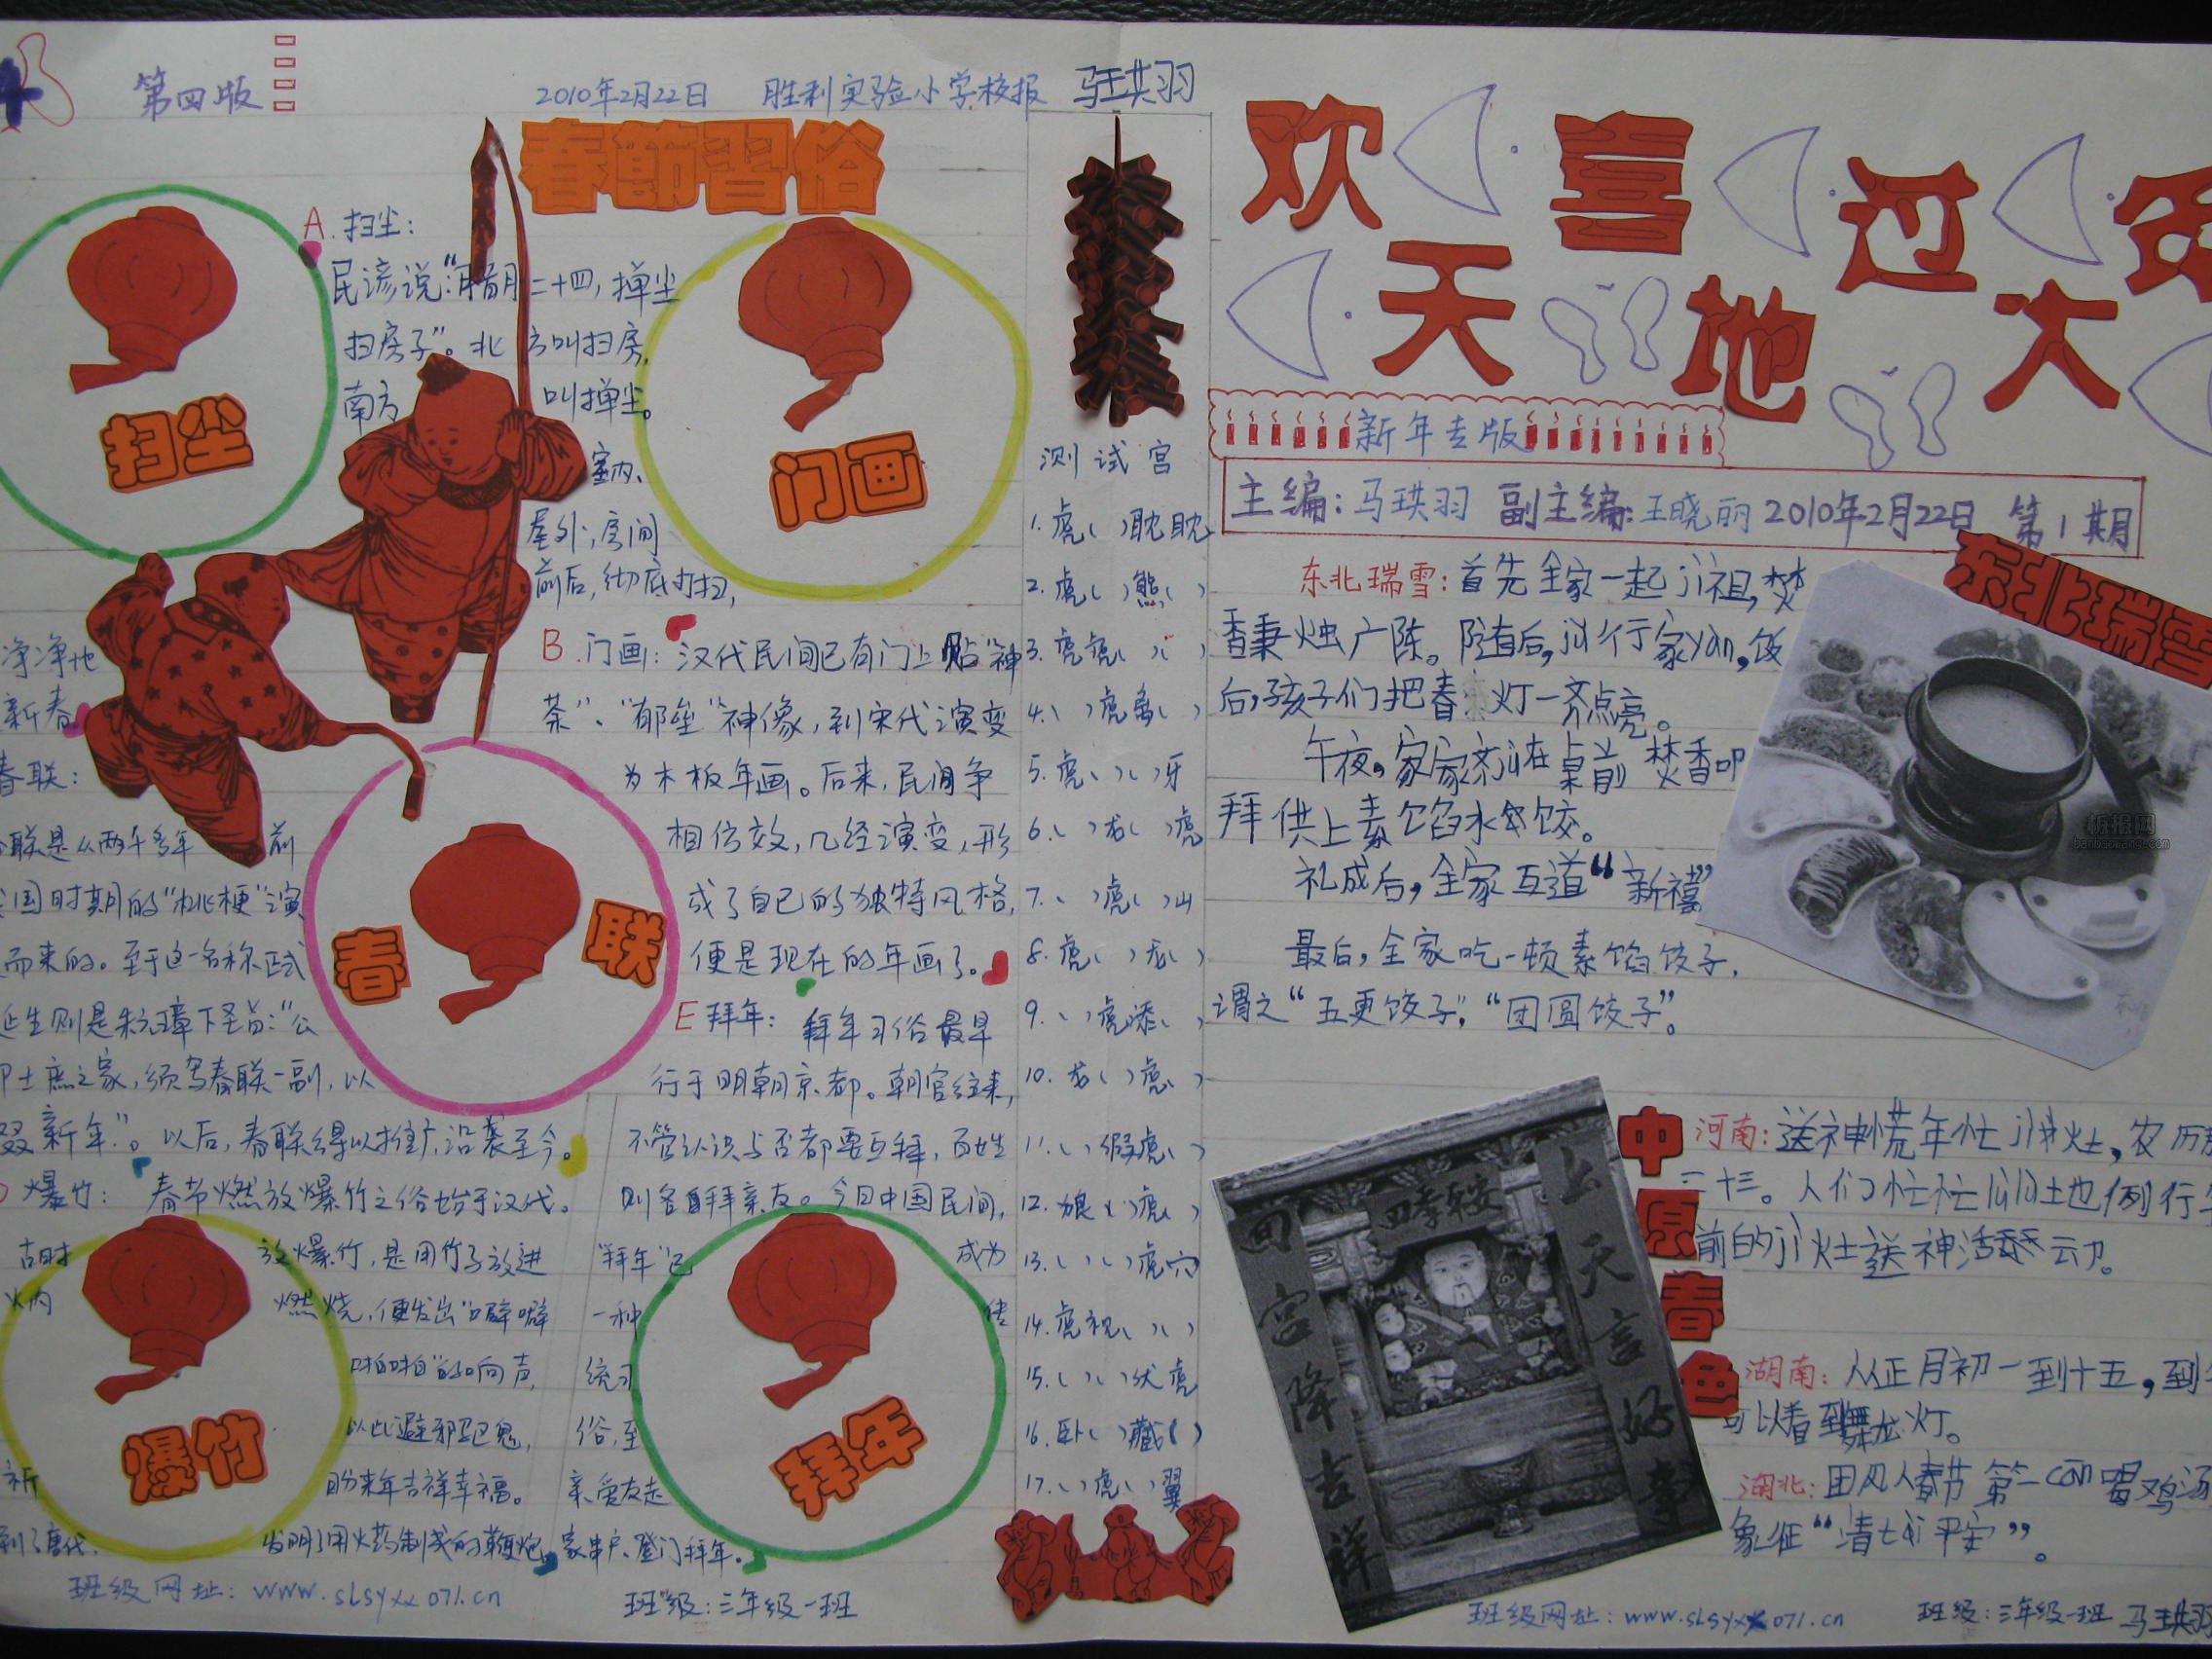 第四版
2010年2月22日 胜利实验小学校报 马珙羽
春節習俗
A.扫尘:
民谚说:"腊月二十四,掸尘
扫房子"。北方叫扫房,
南方叫掸尘。
室内、
屋外,房间
前后,彻底打扫,
净净地
新春
扫尘
门画
B.门画: 汉代民间已有门上贴"神
荼"、"郁垒"神像,到宋代演变
为木板年画。后来,民间争
相仿效,几经演变,形
成了自己的独特风格,
便是现在的年画了。
春联:
联是从两千多年前
国时期的"桃梗"演
而来的。至于这一名称正式
诞生则是朱元璋下圣旨:"公
卿士庶之家,须写春联一副,以
缀新年"。以后,春联得以推广,沿袭至今。
春联
D 爆竹: 春节燃放爆竹之俗始于汉代。
古时放爆竹,是用竹子放进
火内燃烧,便发出"噼噼
啪啪"的响声,
以此避邪驱鬼,
祈盼来年吉祥幸福。
到了唐代,发明了用火药制成的鞭炮。
爆竹
E 拜年: 拜年习俗最早
行于明朝京都。朝官往来,
不管认识与否都要互拜,百姓
则各自拜亲友。今日中国民间,
"拜年"已成为
一种传
统习
俗,至
亲爱友走
家串户、登门拜年。
拜年
班级网址: www.slsyxx071.cn
班级:三年级一班
测试宫
1.虎( )眈眈
2.虎( )熊( )
3.虎虎( )( )
4.( )虎离( )
5.虎( )( )牙
6.( )龙( )虎
7.( )虎( )山
8.虎( )龙( )
9.( )虎添( )
10.龙( )虎( )
11.( )假虎( )
12.狼( )虎( )
13.( )( )虎穴
14.虎视( )( )
15.( )( )伏虎
16.卧( )藏( )
17.( )虎( )翼
欢天喜地过大年
新年专版
主编:马珙羽 副主编:王晓丽 2010年2月22日 第1期
东北瑞雪
东北瑞雪:首先全家一起jì祖,焚
香秉烛广陈。随后,jǔ行家yàn,饭
后,孩子们把春灯一齐点亮。
午夜,家家齐jù在桌前焚香叩
拜供上素馅水饺。
礼成后,全家互道"新禧"
最后,全家吃一顿素馅饺子,
谓之"五更饺子","团圆饺子"。
四季平安
回宫降吉祥
上天言好事
中原春色
河南:送神慌年忙jì灶,农历
二十三。人们忙忙lùlù地例行年
前的jì灶送神活动。
湖南:从正月初一到十五,到
可以看到舞龙灯。
湖北:团风人春节第一cān喝鸡汤
象征"清tài平安"。
班级网址: www.slsyxx071.cn 班级:三年级一班 马珙羽
新报网
banbaowang.com